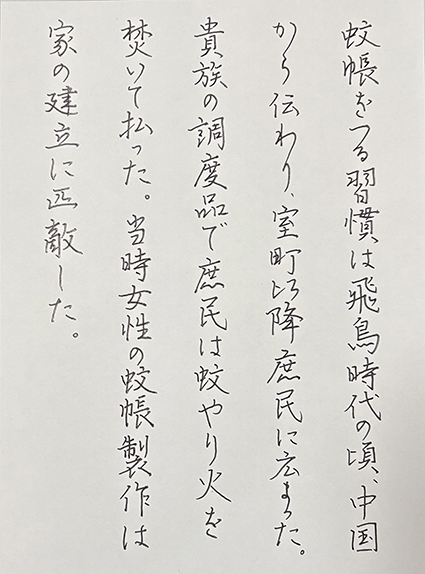 蚊帳をつる習慣は飛鳥時代の頃、中国
から伝わり、室町以降庶民に広まった。
貴族の調度品で庶民は蚊やり火を
焚いて払った。当時女性の蚊帳製作は
家の建立に匹敵した。